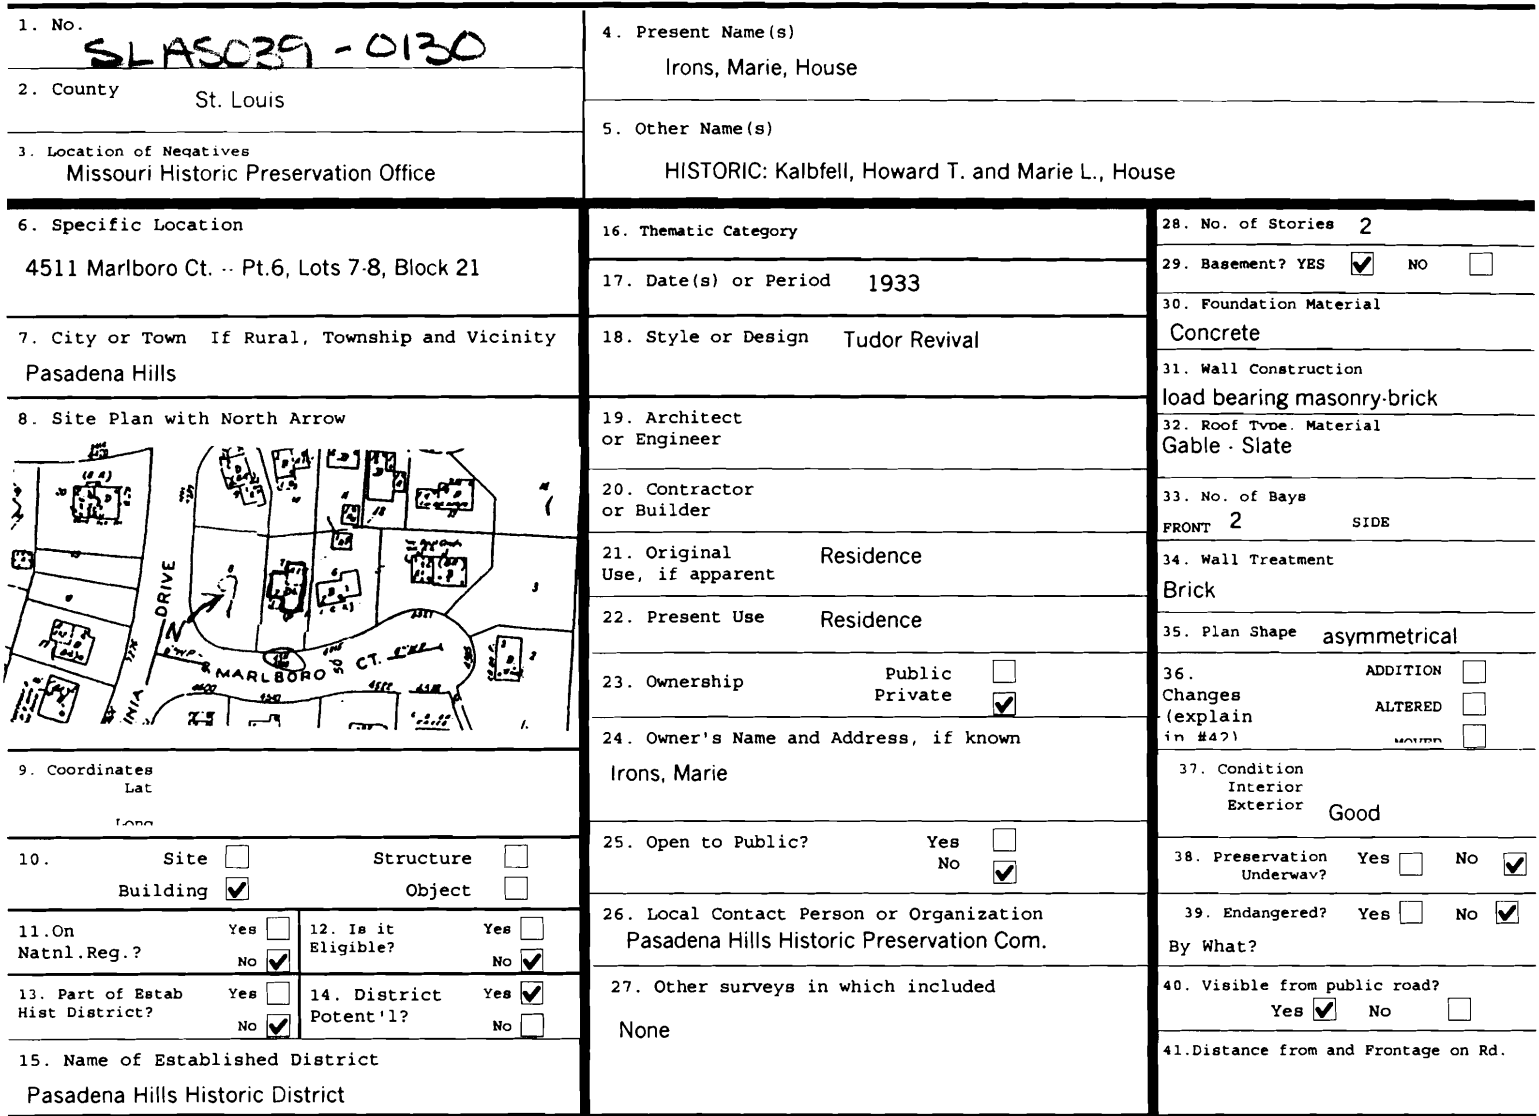 1. No.
SLAS039-0130
2. County
St. Louis
3. Location of Negatives
Missouri Historic Preservation Office
4. Present Name(s)
Irons, Marie, House
5. Other Name(s)
HISTORIC: Kalbfell, Howard T. and Marie L., House
6. Specific Location
4511 Marlboro Ct. -- Pt.6, Lots 7-8, Block 21
7. City or Town If Rural, Township and Vicinity
Pasadena Hills
8. Site Plan with North Arrow
DRIVE
N
MARLBORO CT.
NIA
9. Coordinates
Lat
Long
10. Site Structure
Building ✔ Object
11.On Yes
Natnl.Reg.? No ✔
12. Is it Yes
Eligible? No ✔
13. Part of Estab Yes
Hist District? No ✔
14. District Yes ✔
Potent'l? No
15. Name of Established District
Pasadena Hills Historic District
16. Thematic Category
17. Date(s) or Period 1933
18. Style or Design Tudor Revival
19. Architect
or Engineer
20. Contractor
or Builder
21. Original Residence
Use, if apparent
22. Present Use Residence
23. Ownership Public
Private ✔
24. Owner's Name and Address, if known
Irons, Marie
25. Open to Public? Yes
No ✔
26. Local Contact Person or Organization
Pasadena Hills Historic Preservation Com.
27. Other surveys in which included
None
28. No. of Stories 2
29. Basement? YES ✔ NO
30. Foundation Material
Concrete
31. Wall Construction
load bearing masonry-brick
32. Roof Type. Material
Gable - Slate
33. No. of Bays
FRONT 2 SIDE
34. Wall Treatment
Brick
35. Plan Shape asymmetrical
36. ADDITION
Changes
(explain ALTERED
in #42) MOVED
37. Condition
Interior
Exterior Good
38. Preservation Yes No ✔
Underway?
39. Endangered? Yes No ✔
By What?
40. Visible from public road?
Yes ✔ No
41.Distance from and Frontage on Rd.